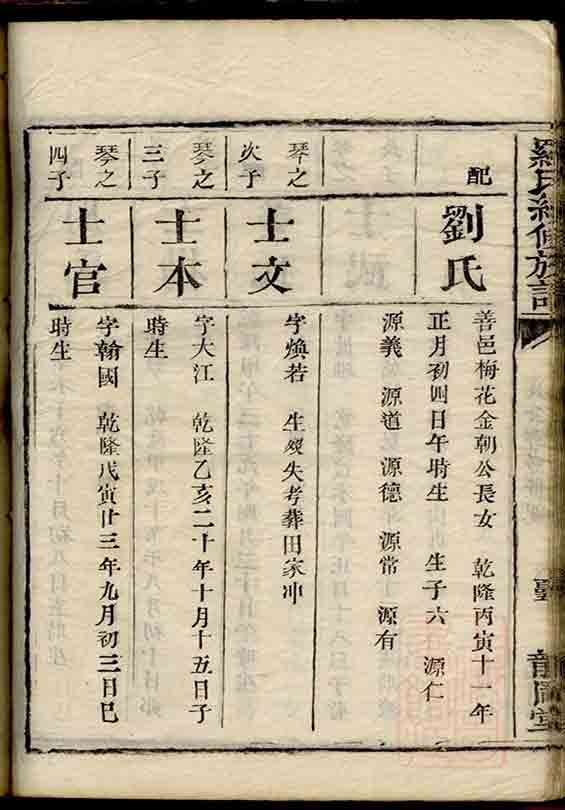 羅氏續修族譜
配
劉氏
善邑梅花金朝公長女 乾隆丙寅十一年
正月初四日午時生 生子六 源仁
源義 源道 源德 源常 源有
琴之
次子
士文
字煥若 生歿失考葬田家冲
琴之
三子
士本
字大江 乾隆乙亥二十年十月十五日子
時生
琴之
四子
士官
字翰國 乾隆戊寅廿三年九月初三日巳
時生